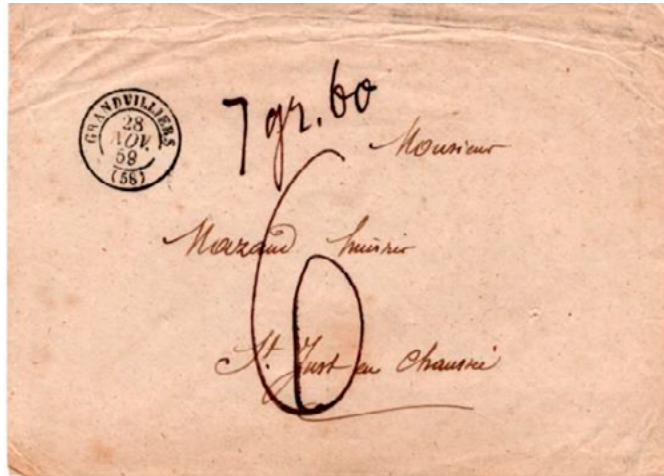 GRANDVILLIERS
28
NOV.
59
(58)
7 gr. 60
6
Monsieur
Mazand huissier
St. Just en chaussée